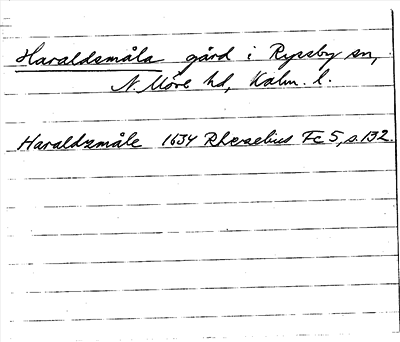 Haraldsmåla gård i Ryssby sn,
N. Möre hd, Kalm. l.
Haraldzmåle 1634 Rhezelius Fc 5, s. 132.